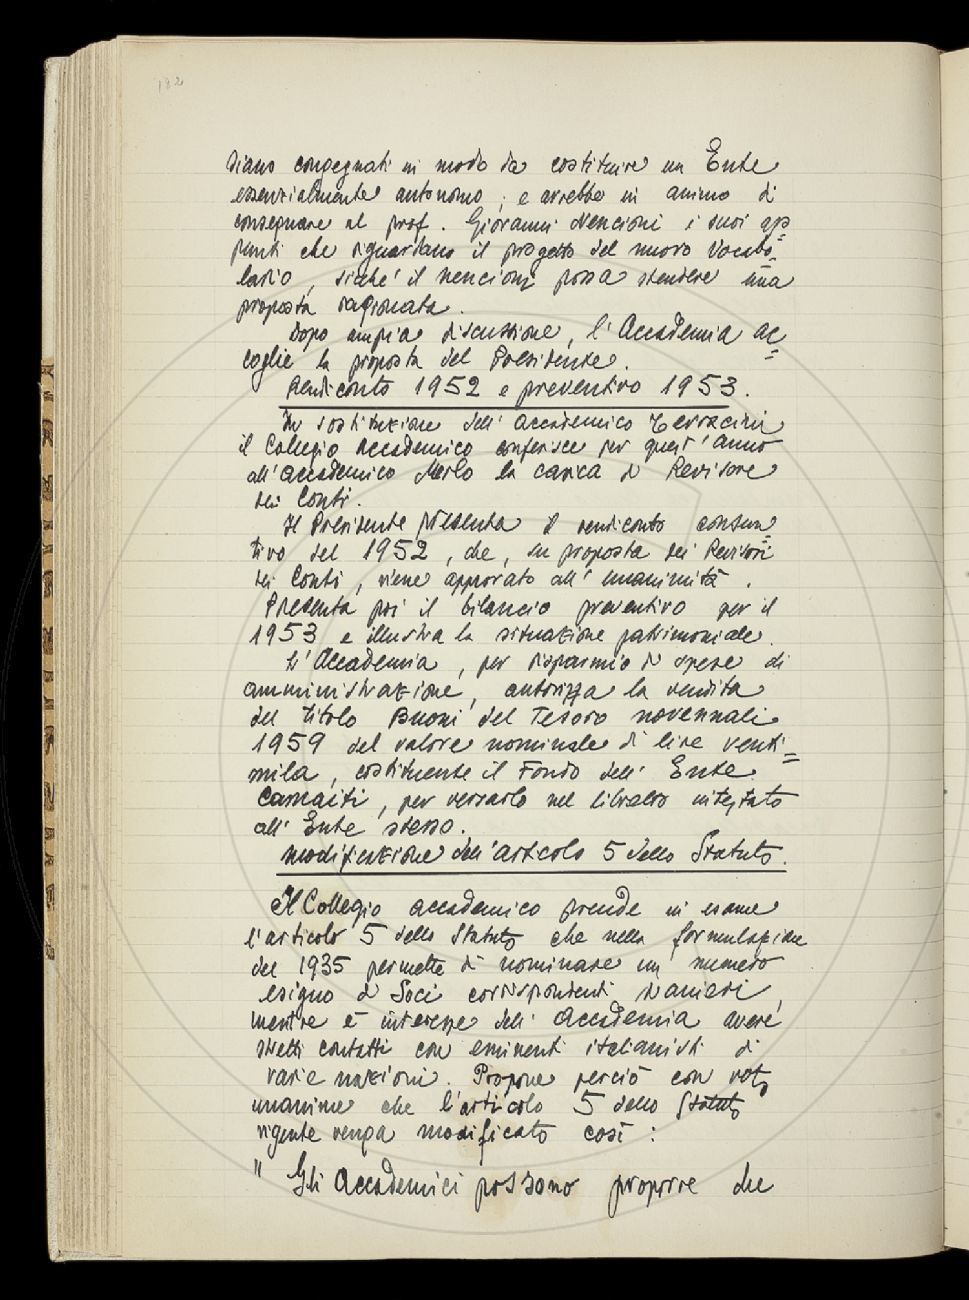 182
siano congegnati in modo da costituire un Ente
essenzialmente autonomo; e avrebbe in animo di
consegnare al prof. Giovanni Nencioni i suoi ap=
punti che riguardano il progetto del nuovo Vocabo=
lario, sicché il Nencioni possa stendere una
proposta ragionata.
Dopo ampia discussione, l'Accademia ac=
coglie la proposta del Presidente.
Rendiconto 1952 e preventivo 1953.
In sostituzione dell'accademico Terracini
il Collegio accademico conferisce per quest'anno
all'accademico Merlo la carica di Revisore
dei Conti.
Il Presidente presenta il rendiconto consun=
tivo del 1952, che, su proposta dei Revisori
dei Conti, viene approvato all'unanimità.
Presenta poi il bilancio preventivo per il
1953 e illustra la situazione patrimoniale.
L'Accademia, per risparmio di spese di
amministrazione, autorizza la vendita
del titolo Buoni del Tesoro novennali
1959 del valore nominale di lire venti=
mila, costituente il Fondo dell'Ente
Camaiti, per versarlo nel libretto intestato
all'Ente stesso.
Modificazione dell'articolo 5 dello Statuto.
Il Collegio accademico prende in esame
l'articolo 5 dello Statuto che nella formulazione
del 1935 permette di nominare un numero
esiguo di Soci corrispondenti stranieri,
mentre è interesse dell'Accademia avere
stretti contatti con eminenti italianisti di
varie nazioni. Propone perciò con voto
unanime che l'articolo 5 dello Statuto
vigente venga modificato così:
" Gli Accademici possono proporre che